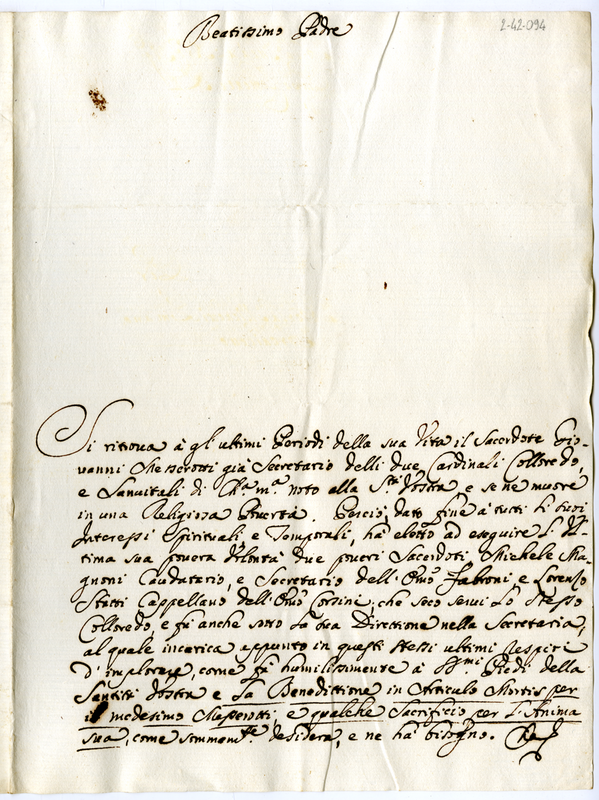 Beatissimo Padre
2-42-094
Si ritroua à gl'ultimi Periodi della sua Vita il Sacerdote Gio-
uanni già Secretario delli due Cardinali Colloredo,
e Sanuitali di Ch.ª m.ª noto alla S.tà Vostra e se ne muore
in una Religiosa Pouertà. Perciò, dato fine à tutti li suoi
Interessi Spirituali e Temporali, hà eletto ad eseguire l'Vl-
tima sua pouera Volontà due poueri Sacerdoti Michele Ma-
gnoni Caudatario, e Secretario dell' Em.º Fabroni e Lorenzo
Cappellano dell' Em.º Corsini, che seco seruì lo stesso
Colloredo, e fù anche sotto la sua Direttione nella Secretaria,
al quale incarica appunto in questi stessi ultimi respiri
d'implorare, come fà humilissimamente à SS.mi Piedi della
Santità Vostra e la Benedittione in Articulo Mortis per
il medesimo e qualche Sacrificio per l'Anima
sua, come desidera, e ne hà bisogno.